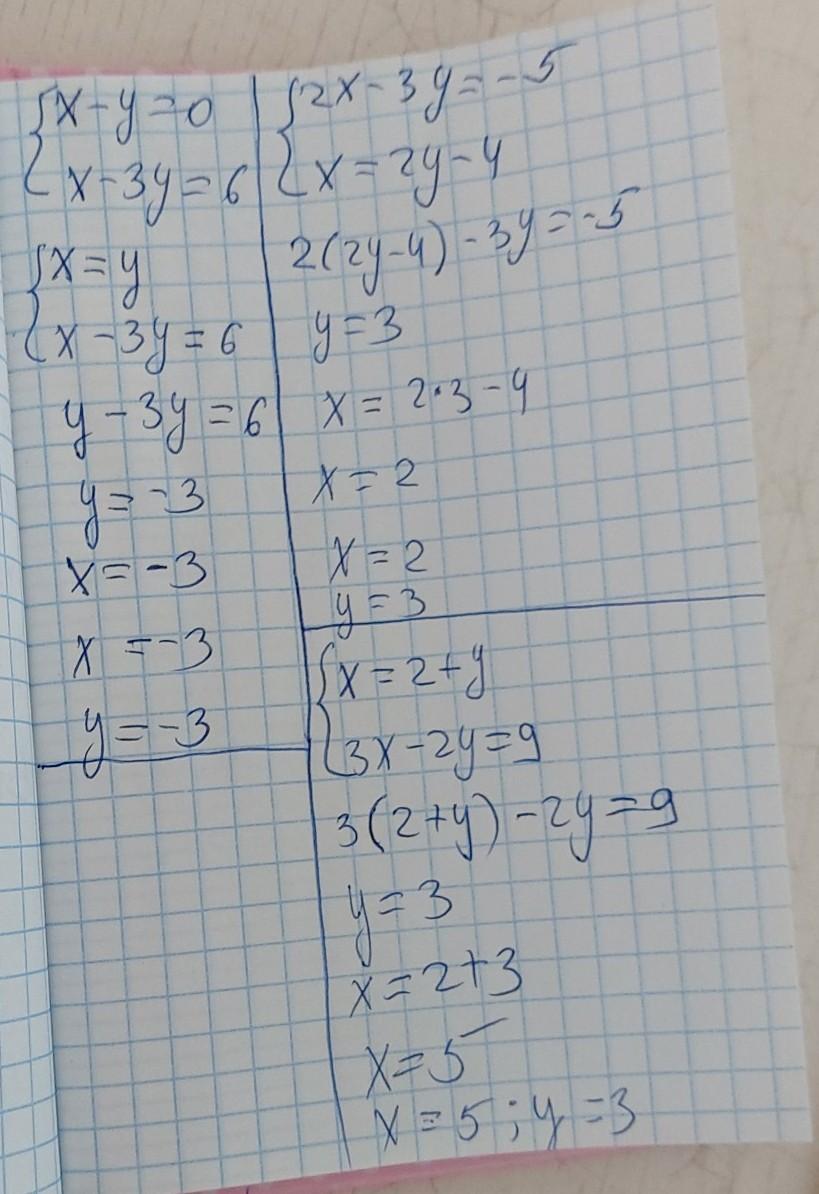 x-y=0
x-3y=6
x=y
x-3y=6
y-3y=6
y=-3
x=-3
x=-3
y=-3
2x-3y=-5
x=2y-4
2(2y-4)-3y=-5
y=3
x=2·3-4
x=2
x=2
y=3
x=2+y
3x-2y=9
3(2+y)-2y=9
y=3
x=2+3
x=5
x=5; y=3